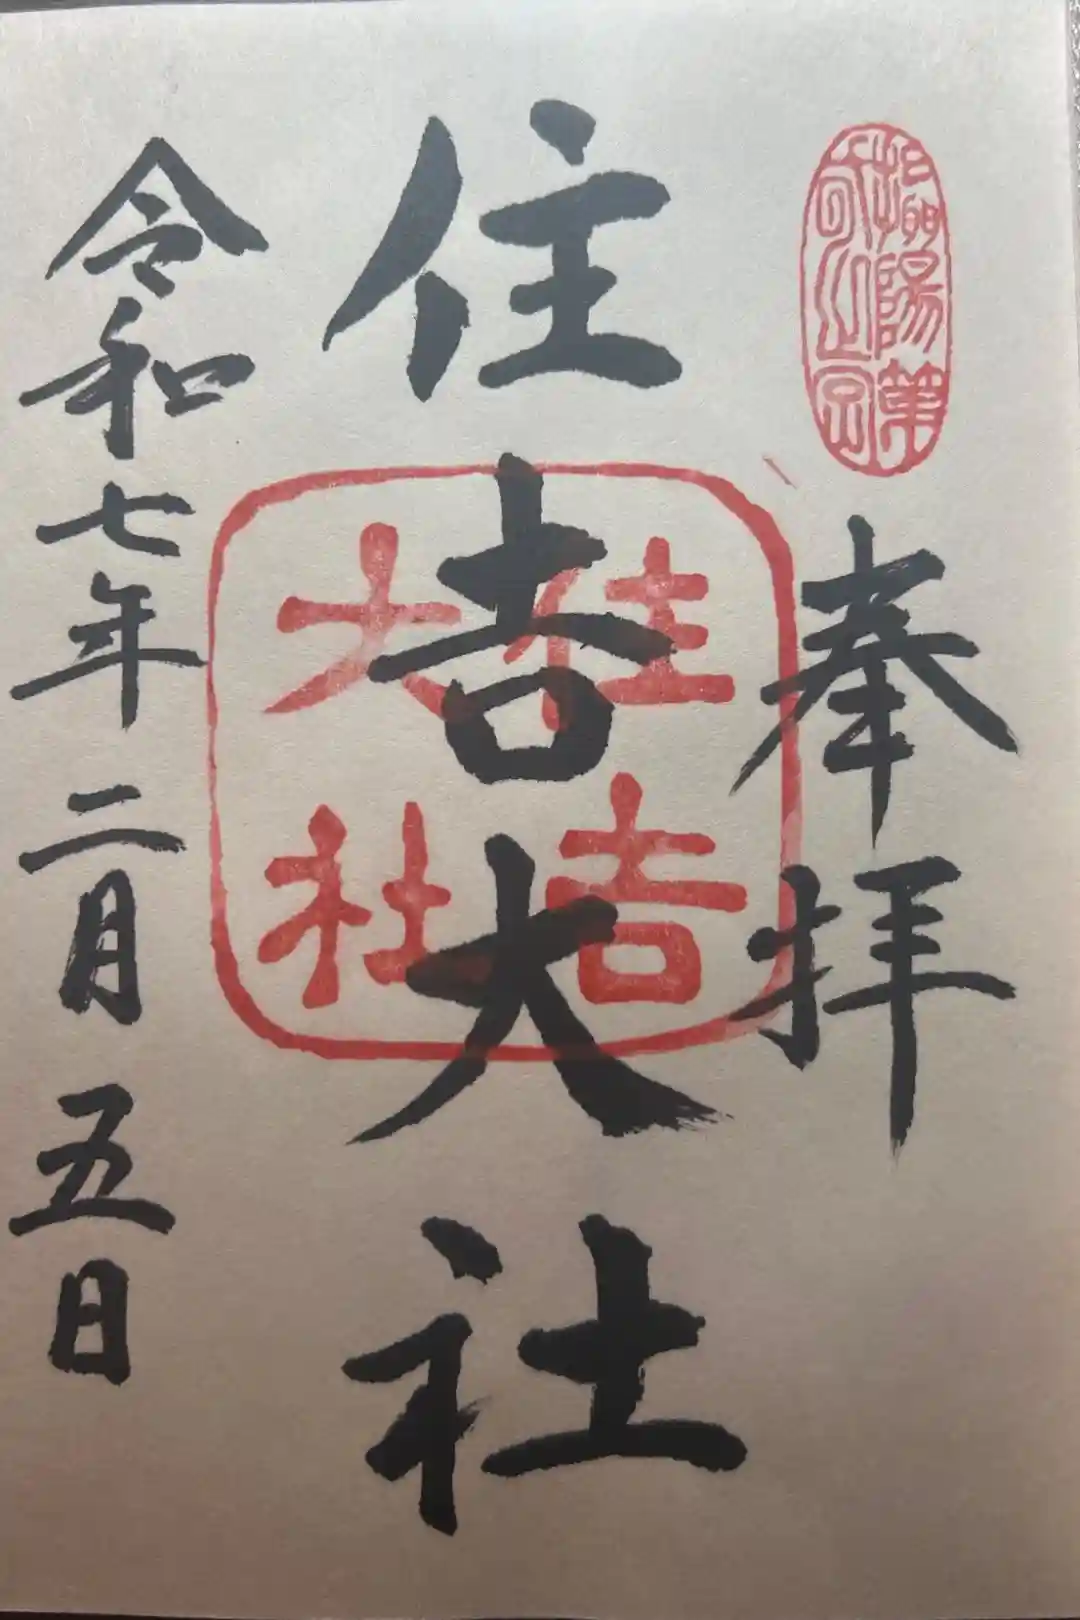 奉拝
住吉大社
住吉大社
令和七年二月五日